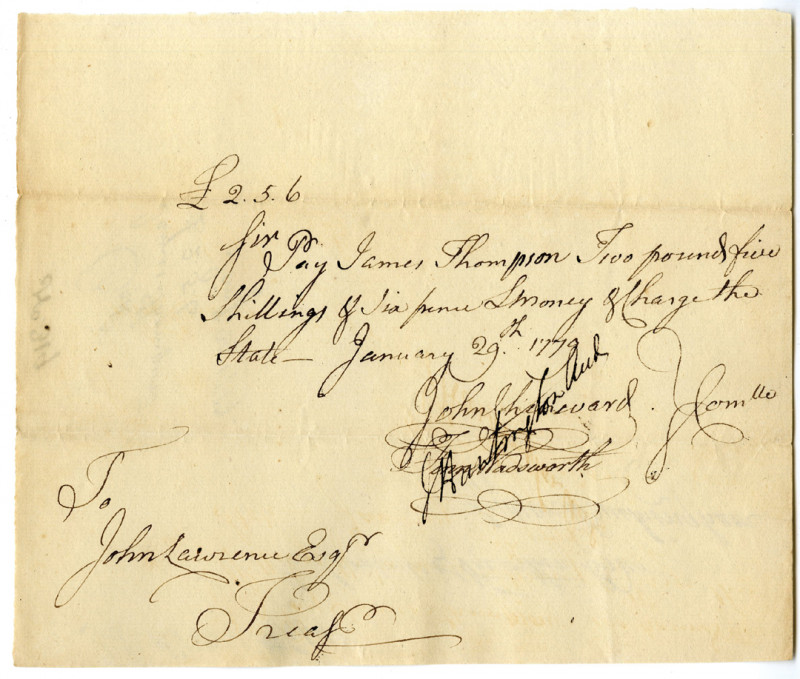 £ 2. 5. 6
Sir Pay James Thompson Two pound five
Shillings & Six pence L Money & Charge the
State — January 29th. 1779
John Chenevard
Comtte
Huntington Aud
Wadsworth
To
John Lawrence Esqr
Treasr